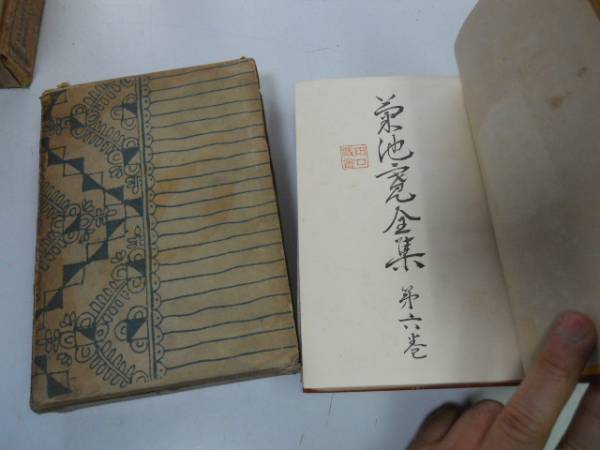 菊池寛全集 第六巻